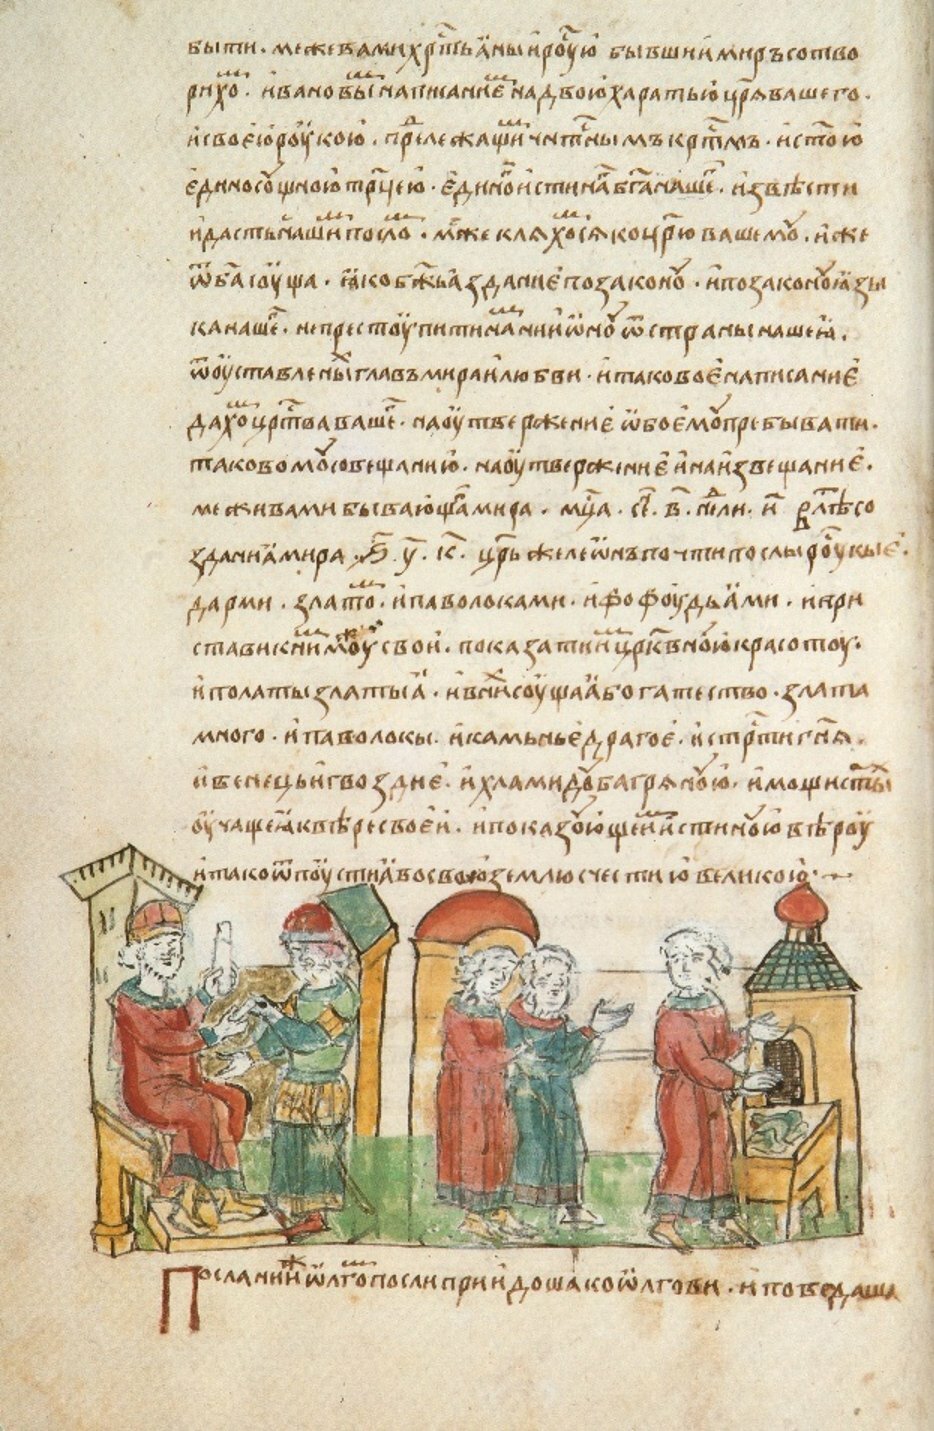 быти · межевами хр҃тьꙗны и роусю бывшии миръ сотво
рихѡ · ивановы написаниє надвою харатью цр҃ѧ вашего ·
и своєю роукою · прележащи чтⷭ҇нымъ крⷭ҇тмъ · и ст҃ою
єдиносоущною трⷪ҇цею · єдиного истинаⷢ҇ б҃га нашеⷢ҇ · извѣсти
и дасть нашим посло · мы же кляхося ко цр҃ю вашемоу · иже
ѿ б҃а соуща · ꙗко бж҃ьꙗ зданиє по законоу · и по законоу ꙗзы
ка нашеⷢ҇ · не престоупити нам ни иномоу ѿ страны нашеꙗ ·
ѿ оуставленых главъ мира и любви · и таковоє написаниє
дахѡ црⷭ҇тва вашеⷢ҇ · на оутвержениє ѡбоємоу пребывати ·
таковомоу совещанию · на оутвержениє и на извещаниє ·
межи вами бывающаⷢ҇ мира · мцⷭ҇а · се҃ · в҃ · нⷣели · и҃ · в лѣⷮ со
зданиꙗ мира · ҂ѕ҃ · у҃ · к҃ · цр҃ь же леѡнъ почти послы роускыє ·
дарми · златом · и паволоками · и фофоудьꙗми · и при
стави к ним моужи свои · показати им цр҃квноую красотоу ·
и полаты златыꙗ · и в них соущаꙗ богатество · злата
много · и паволокы · и каменьє драгоє · и стрⷭ҇ти гн҃ѧ ·
и венець и гвоздиє · и хламидоу багрѧноую · и мощи ст҃ых
оучаще ꙗ к вѣре своєи · и показоующе им истинноую вѣроу
и тако ѿпоусти ꙗ во свою землю с честию великою ·
Посланииж ѡлгом посли приидоша ко ѡлгови · и поведаша